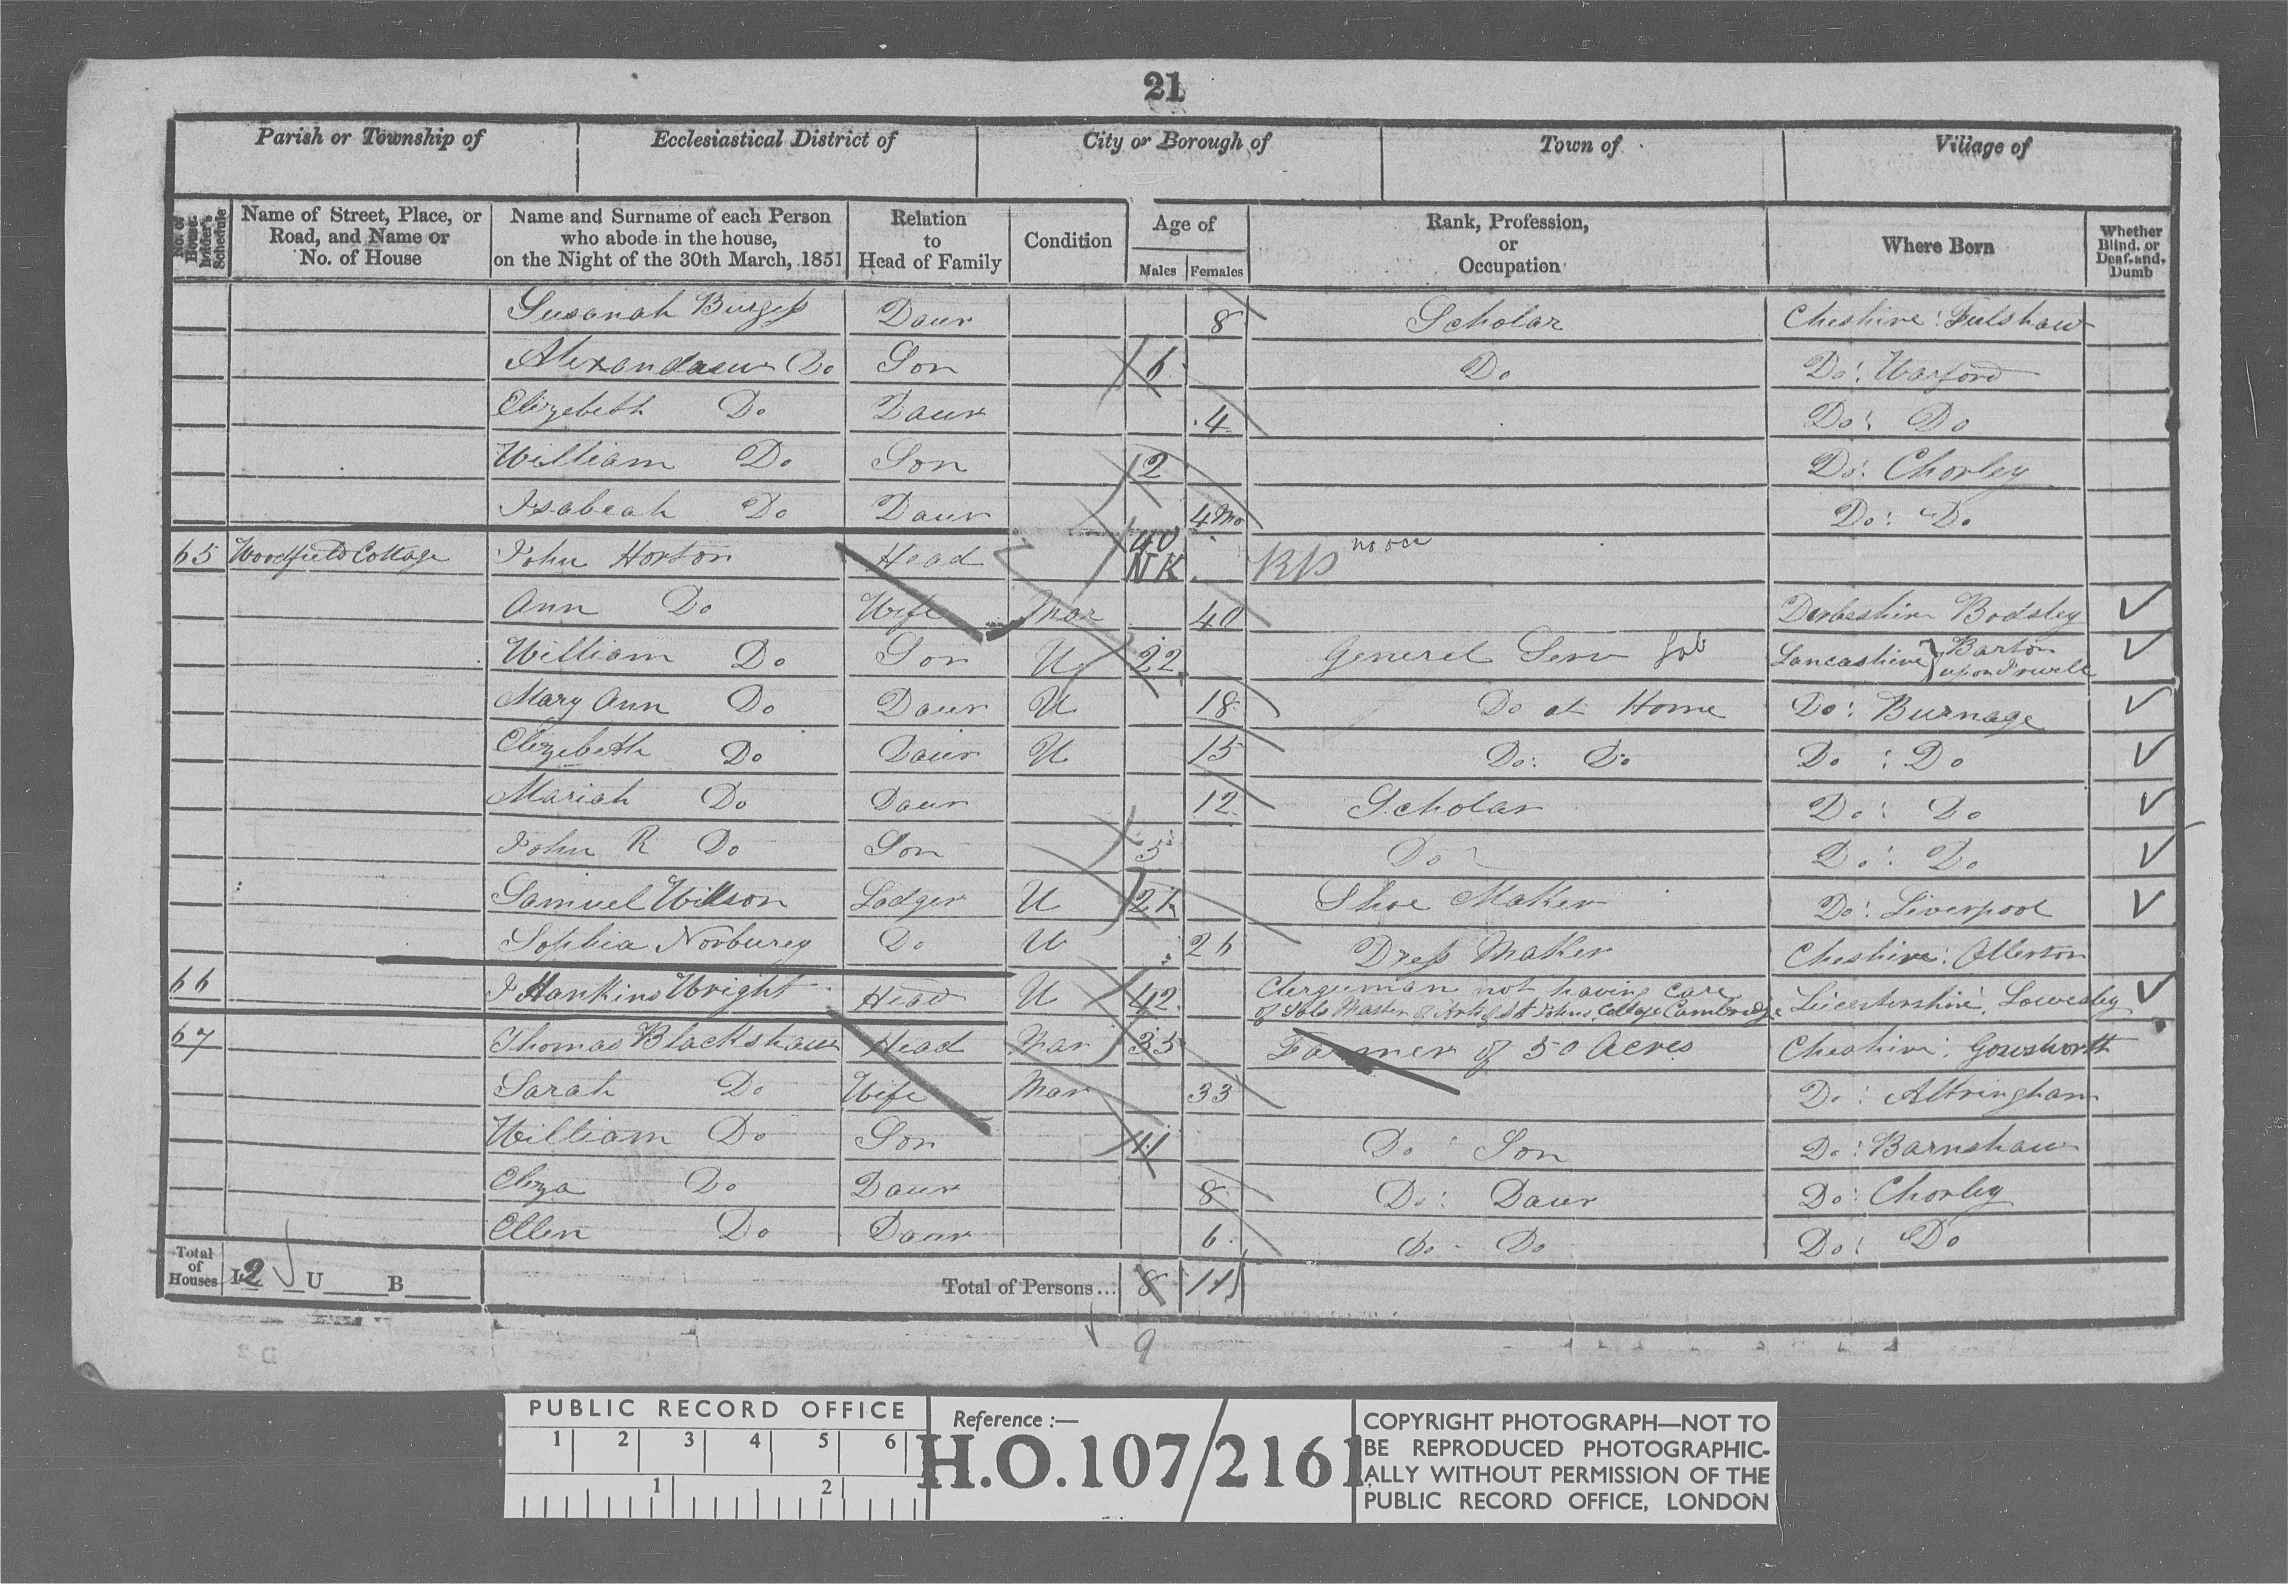 21
Parish or Township of Ecclesiastical District of City or Borough of Town of Village of
No. of House-holder's Schedule Name of Street, Place, or Road, and Name or No. of House Name and Surname of each Person who abode in the house, on the Night of the 30th March, 1851 Relation to Head of Family Condition Age of Males Females Rank, Profession, or Occupation Where Born Whether Blind, or Deaf-and-Dumb
Susanah Burgess Daur 8 Scholar Cheshire: Fulshaw
Do Son 6 Do Do: Warford
Elizebeth Do Daur 4 Do: Do
William Do Son 2 Do: Chorley
Isabeah Do Daur 4 Mo Do: Do
65 Woodfield Cottage John Horton Head 40 NK
Ann Do Wife Mar 40 Derbeshire Bodsley
William Do Son U 22 General Serv Lancashire } Barton upon Irwell
Mary Ann Do Daur U 18 Do at Home Do: Burnage
Elizebeth Do Daur U 15 Do: Do Do: Do
Mariah Do Daur 12 Scholar Do: Do
John R Do Son 5 Do Do: Do
Samuel Willson Lodger U 21 Shoe Maker Do: Liverpool
Sophia Norburey Do U 26 Dress Maker Cheshire: Ollerton
66 J Hankins Wright Head U 42 Clergyman not having Care of Sols Master of Arts of St Johns College Cambridge Leicestershire: Lowesby
67 Thomas Blackshaw Head Mar 35 Farmer of 50 Acres Cheshire: Gowsworth
Sarah Do Wife Mar 33 Do: Altringham
William Do Son 11 Do: Son Do: Barnshaw
Eliza Do Daur 8 Do: Daur Do: Chorley
Ellen Do Daur 6 Do Do Do: Do
Total of Houses I 2 U B Total of Persons... 8 11
9
PUBLIC RECORD OFFICE
1 2 3 4 5 6
1 2
Reference :—
H.O. 107/2161
COPYRIGHT PHOTOGRAPH—NOT TO
BE REPRODUCED PHOTOGRAPHIC-
ALLY WITHOUT PERMISSION OF THE
PUBLIC RECORD OFFICE, LONDON